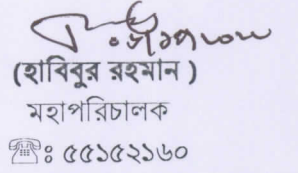 (হাবিবুর রহমান )
মহাপরিচালক
☎ঃ ৫৫১৫২১৬০